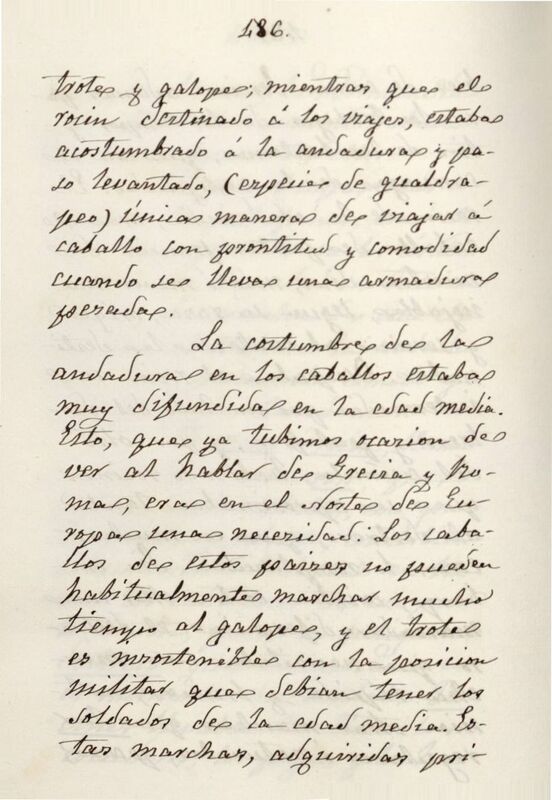 186.
trote y galope; mientras que el
rocin destinado á los viajes, estaba
acostumbrado á la andadura y pa-
so levantado, (especie de gualdra-
peo) única manera de viajar á
caballo con prontitud y comodidad
cuando se lleva una armadura
pesada.
La costumbre de la
andadura en los caballos estaba
muy difundida en la edad media.
Esto, que ya tubimos ocasion de
ver al hablar de Grecia y Ro-
ma, era en el Norte de Eu-
ropa una necesidad. Los caba-
llos de estos paises no pueden
habitualmente marchar mucho
tiempo al galope, y el trote
es insostenible con la posicion
militar que debian tener los
soldados de la edad media. Es-
tas marchas, adquiridas pri-